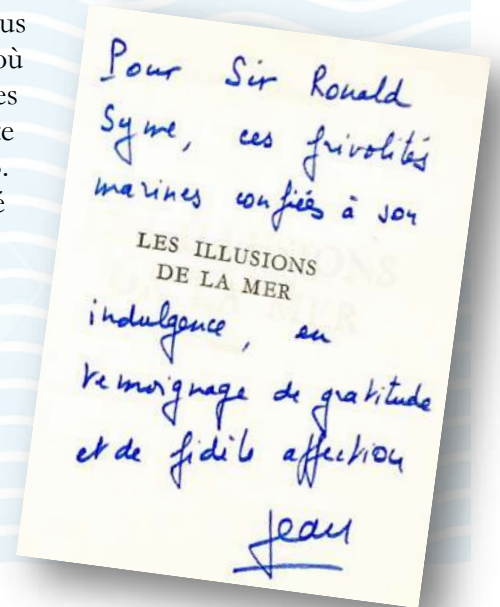 us
où
es
te
.
é
Pour Sir Ronald
Syme, ces frivolités
marines confiées à son
LES ILLUSIONS
DE LA MER
indulgence, en
temoignage de gratitude
et de fidèle affection
Jean